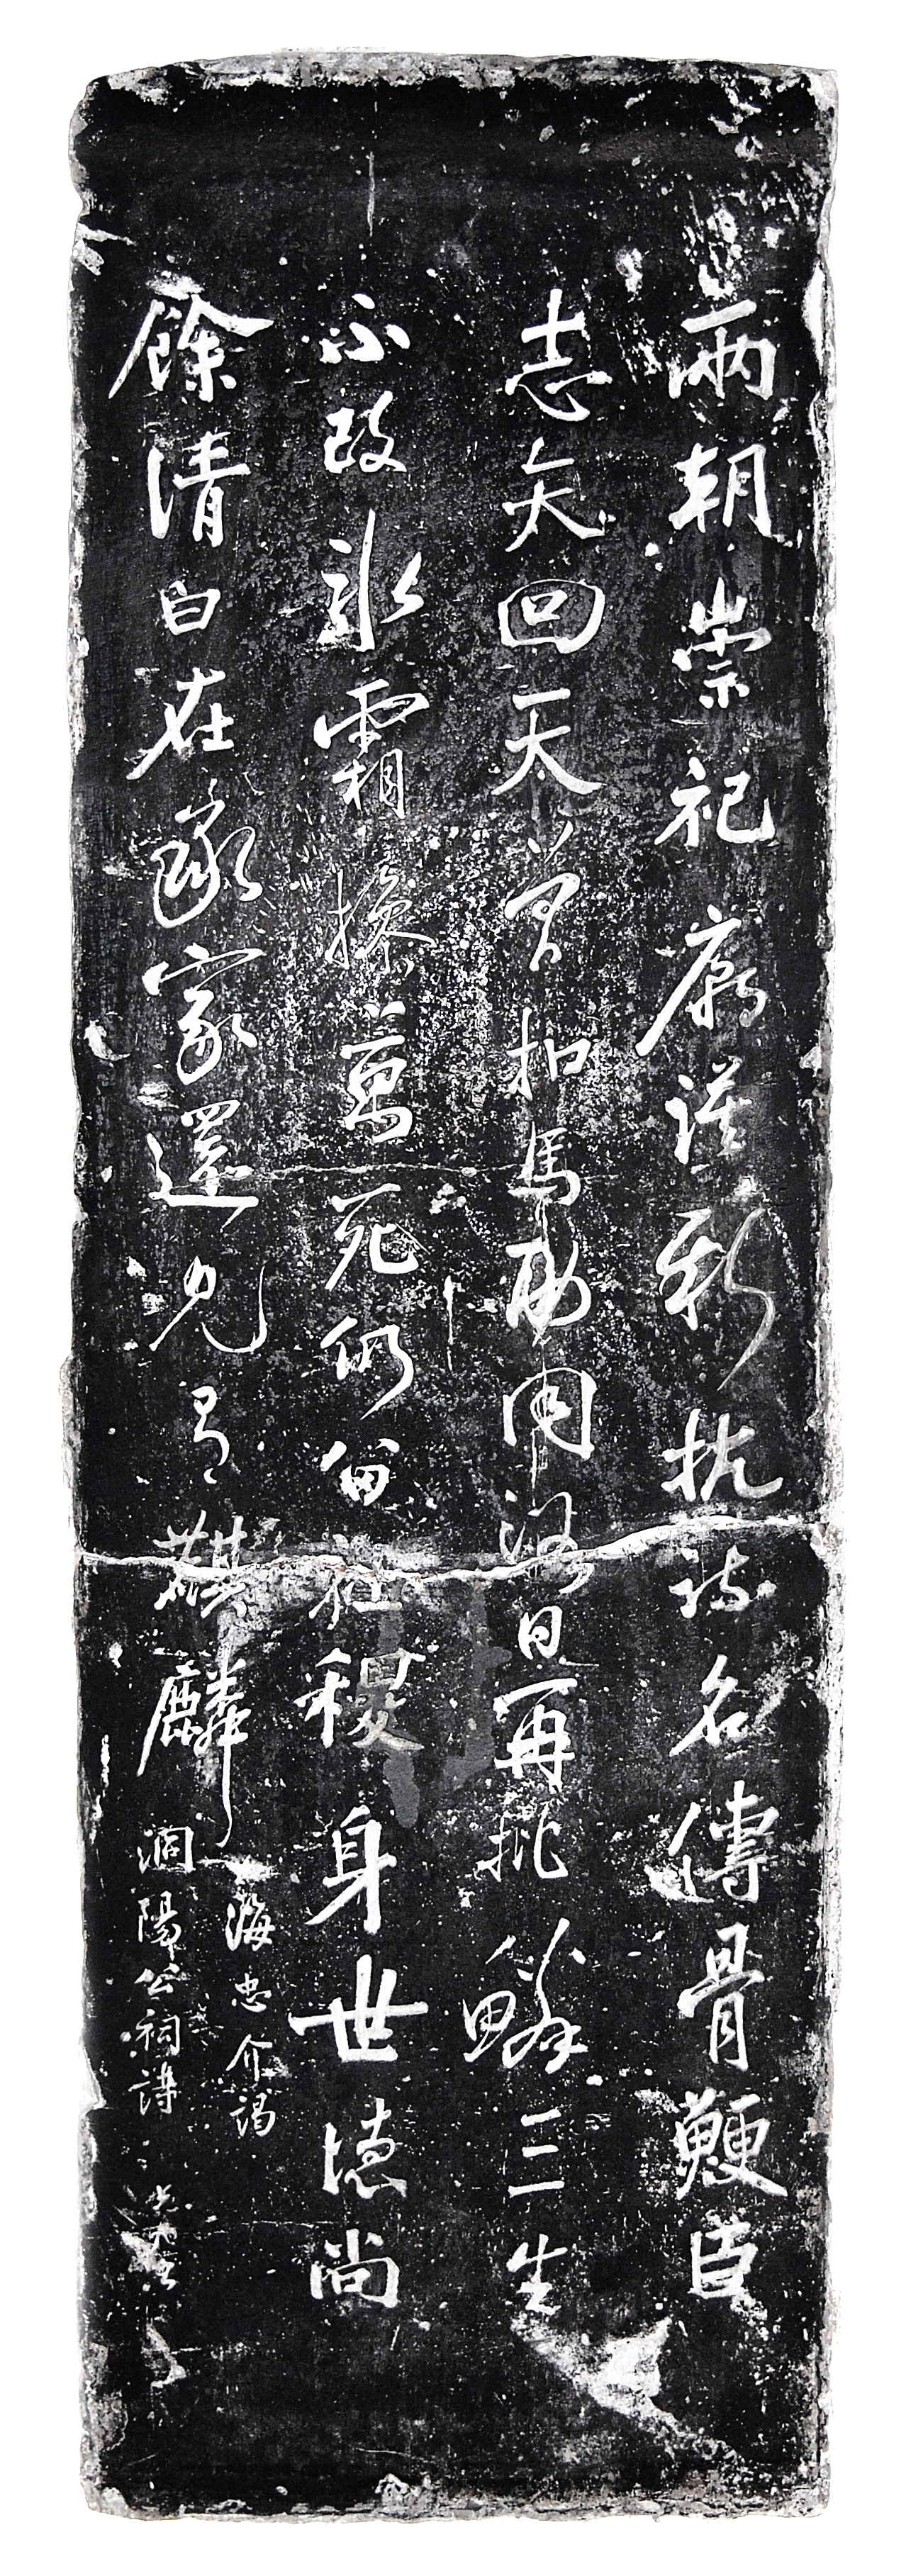 兩朝崇祀廟謨新抗疏名傳骨鯁臣
志矢回天曾扣馬功同浴日再批鱗三生
不改冰霜操萬死仍留社稷身世德尚
餘清白在承家還見有麒麟
海忠介謁
洞陽公祠詩